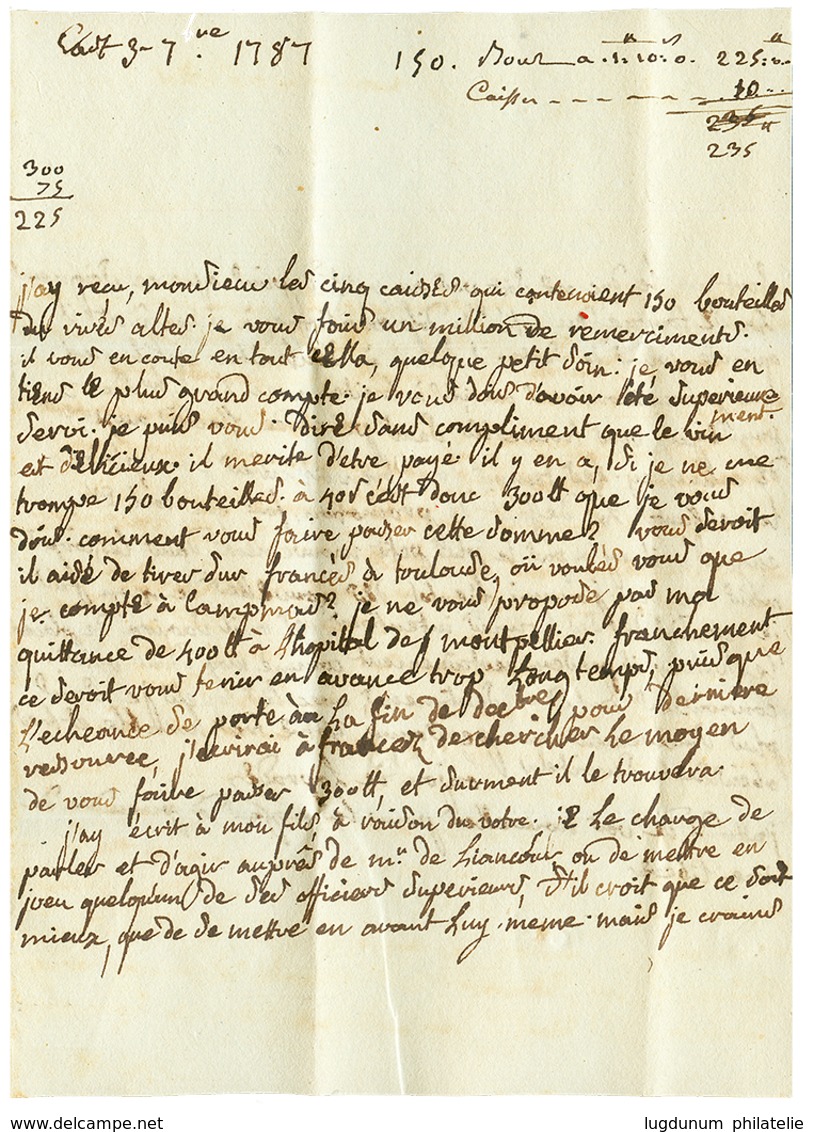 Cast 3- 7.bre 1787
150. Bout a .1:10:0. 225:0.
Caisse - - - - - 10..
235
235
300
75
225
j'ay reçu, monsieur les cinq caisses qui contenoient 150 bouteilles
du vivés altes. je vous fais un million de remerciments.
il vous en coute en tout cella, quelque petit soin: je vous en
tiens le plus grand compte. je vous dois d'avoir été superieure
ment.
servi. je puis vous dire sans compliment que le vin
est délicieux. il merite d'etre payé. il y en a, si je ne me
trompe 150 bouteilles. à 40s c'est donc 300tt que je vous
dois. comment vous faire passer cette somme? vous seroit
il aisé de tirer sur francés à toulouse, où voulés vous que
je compte à ? je ne vous propose pas ma
quittance de 400tt à L'hopital de montpellier. franchement
ce seroit vous tenir en avance trop Long temps, puis que
L'echeance se porte àu La fin de docbre, pour derniere
ressource, j'ecrirai à francez de chercher Le moyen
de vous faire passer 300tt, et surment il le trouvera.
j'ay écrit à mon fils, à raison du votre. je Le charge de
parler et d'agir auprès de mr. de Liancour, ou de mettre en
jeu quelqu'un de ses officiers superieurs, s'il croit que ce soit
mieux, que de se mettre en avant Luy. meme. mais je crains
www.delcampe.net
lugdunum philatelie